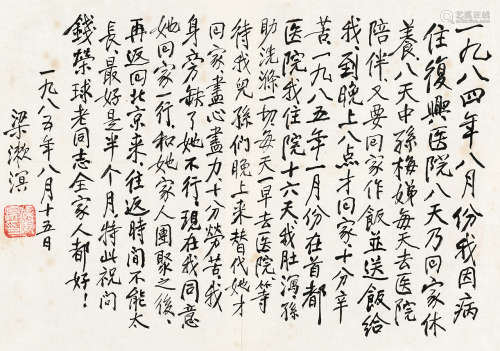 一九八四年八月份我因病
住復興医院八天乃回家休
養八天中孫梅娣每天去医院
陪伴又要回家作飯並送飯给
我，到晚上八点才回家十分辛
苦一九八五年一月份在首都
医院我住院十六天我肚瀉孫
助洗滌一切每天一早去医院等
待我兒孫们晚上来替代她才
回家盡心盡力十分勞苦我
身旁缺了她不行，现在我同意
她回家一行和她家人團聚之後，
再返回北京来，往返時间不能太
長最好是半个月，特此祝问
錢榮球老同志全家人都好！
一九八五年八月十五日
梁漱溟